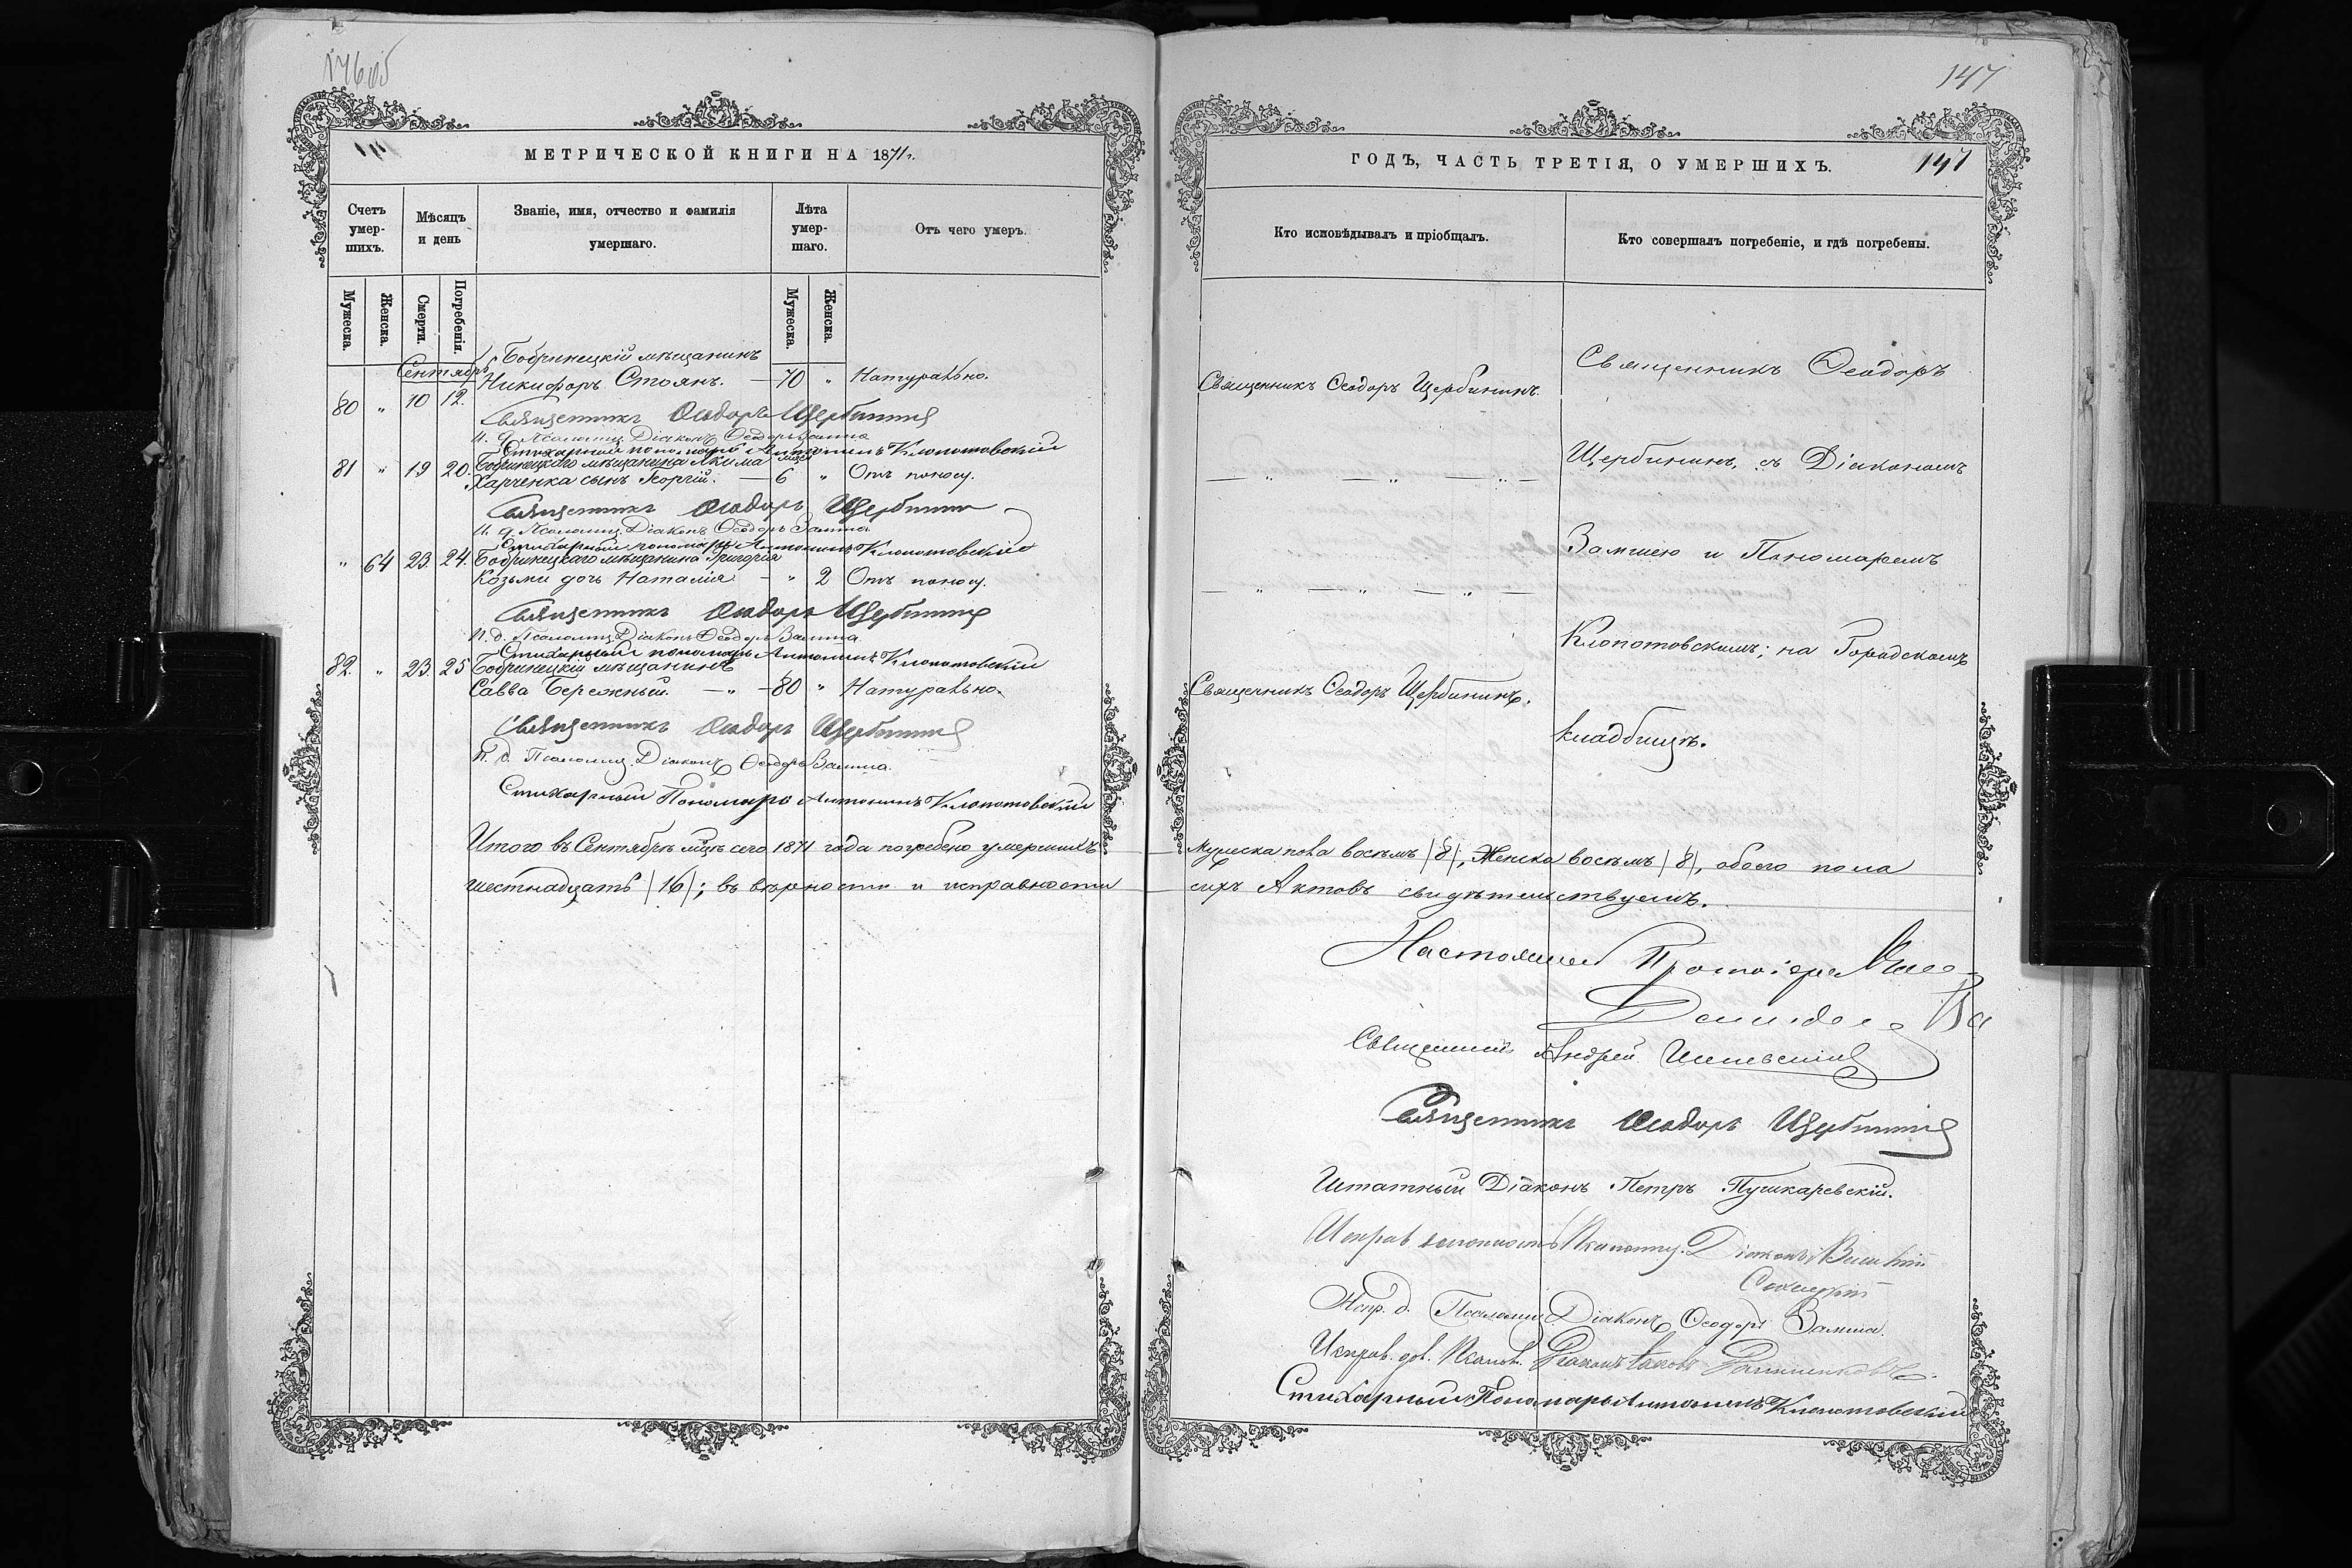 146об
МЕТРИЧЕСКОЙ КНИГИ НА 1871 г.
Счетъ умершихъ.
Мѣсяцъ и день
Званіе, имя, отчество и фамилія умершаго.
Лѣта умершаго.
Отъ чего умеръ.
Мужеска.
Женска.
Смерти.
Погребенія.
Мужеска.
Женска.
Сентябрь
Бобринецкій мѣщанинъ
80 " 10 12. Никифоръ Стоянъ. — 70 " Натурально.
Священникъ Ѳеодоръ Щербининъ
И. д. Псаломщ. Діаконъ Ѳеодоръ Замша
Стихарный пономарь Антонинъ Клопотовскій
Бобринецкаго мѣщанина Якима
81 " 19 20. Харченка сынъ Георгій. — 6 " Отъ поносу.
Священникъ Ѳеодоръ Щербининъ
И. д. Псаломщ. Діаконъ Ѳеодоръ Замша
Стихарный пономарь Антонинъ Клопотовскій
" 64 23. 24. Бобринецкаго мѣщанина Григорія
Козьми дочь Наталія — " 2 Отъ поносу.
Священникъ Ѳеодоръ Щербининъ
И. д. Псаломщ. Діаконъ Ѳеодоръ Замша
Стихарный пономарь Антонинъ Клопотовскій
82. " 23. 25 Бобринецкій мѣщанинъ
Савва Бережный. — " — 80 " Натурально.
Священникъ Ѳеодоръ Щербининъ
И. д. Псаломщ. Діаконъ Ѳеодоръ Замша.
Стихарный Пономарь Антонинъ Клопотовскій
Итого въ Сентябрѣ мцѣ сего 1871 года погребено умершихъ
шестнадцать /16/; въ вѣрности и исправности
147
ГОДЪ, ЧАСТЬ ТРЕТІЯ, О УМЕРШИХЪ.
147
Кто исповѣдывалъ и пріобщалъ.
Кто совершалъ погребеніе, и гдѣ погребены.
Священникъ Ѳеодоръ
Священникъ Ѳеодоръ Щербининъ.
Щербининъ, съ Діакономъ
— " — " — " —
Замшею и Пономаремъ
— " — " — " —
Клопотовскимъ; на Городскомъ
Священникъ Ѳеодоръ Щербининъ.
кладбищѣ.
Мужеска пола восемь /8/, Женска восемь /8/, обоего пола
сихъ Актовъ свидѣтельствуемъ.
Настоятель Протоіерей
Священникъ Андрей
Священникъ Ѳеодоръ Щербининъ
Штатный Діаконъ Петръ Пушкаревскій.
Исправ должность Псаломщ. Діаконъ
Испр. д. Псаломщ Діаконъ Ѳеодоръ Замша.
Исправ. дол. Псалом. Діаконъ Іаковъ
Стихарный Пономарь Антонинъ Клопотовскій